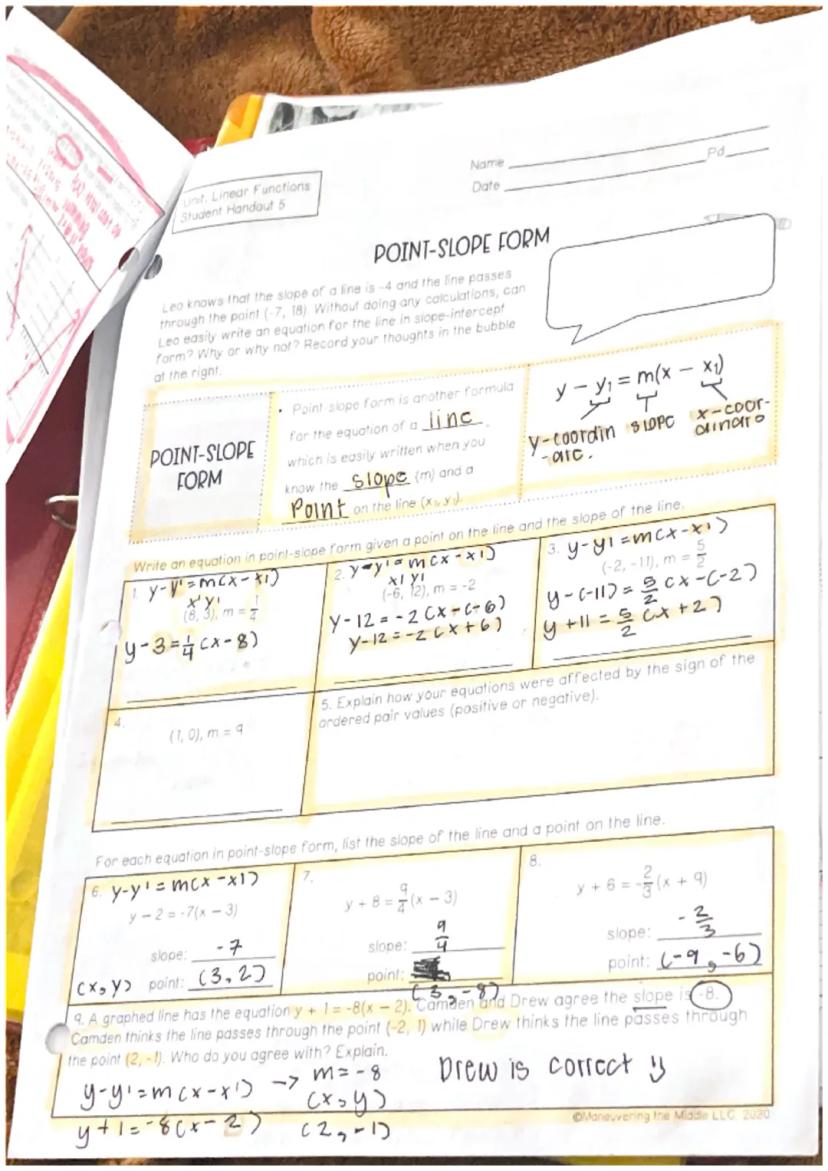 Name
Pd.
Date
Unit: Linear Functions
Student Handout 5
POINT-SLOPE FORM
Leo knows that the slope of a line is -4 and the line passes
through the point (-7, 18). Without doing any calculations, can
Leo easily write an equation for the line in slope-intercept
form? Why or why not? Record your thoughts in the bubble
at the right.
POINT-SLOPE
FORM
• Point-slope form is another formula
for the equation of a line,
which is easily written when you
know the slope (m) and a
Point on the line (x₁, y₁).
y − y₁ = m(x − x₁)
y-coordin
-ate.
slope
x-coor-
dinate
Write an equation in point-slope form given a point on the line and the slope of the line.
1. y-y' = m(x-x1)
x' y'
(8, 3), m = 1/4
y-3 = 1/4 (x-8)
2. y-y' = m(x-x1)
x1 y1
(-6, 12), m = -2
y-12 = -2(x-(-6)
y-12 = -2(x+6)
3. y-y1 = m(x-x')
(-2, -11), m = 5/2
y-(-11) = 5/2 (x-(-2)
y+11 = 5/2 (x+2)
4.
(1, 0), m = 9
5. Explain how your equations were affected by the sign of the
ordered pair values (positive or negative).
For each equation in point-slope form, list the slope of the line and a point on the line.
6. y-y' = m(x-x1)
y − 2 = -7(x − 3)
slope: -7
(x,y) point: (3,2)
7.
y + 8 = 9/4 (x − 3)
slope: 9/4
point:
(3,-8)
8.
y + 6 = -2/3 (x + 9)
slope: -2/3
point: (-9,-6)
9. A graphed line has the equation y + 1 = -8(x − 2). Camden and Drew agree the slope is -8.
Camden thinks the line passes through the point (-2, 1) while Drew thinks the line passes through
the point (2, -1). Who do you agree with? Explain.
y-y' = m(x-x') → m = -8
(x,y)
Drew is correct
y+1 = -8(x-2) (2,-1)
©Maneuvering the Middle LLC, 2020